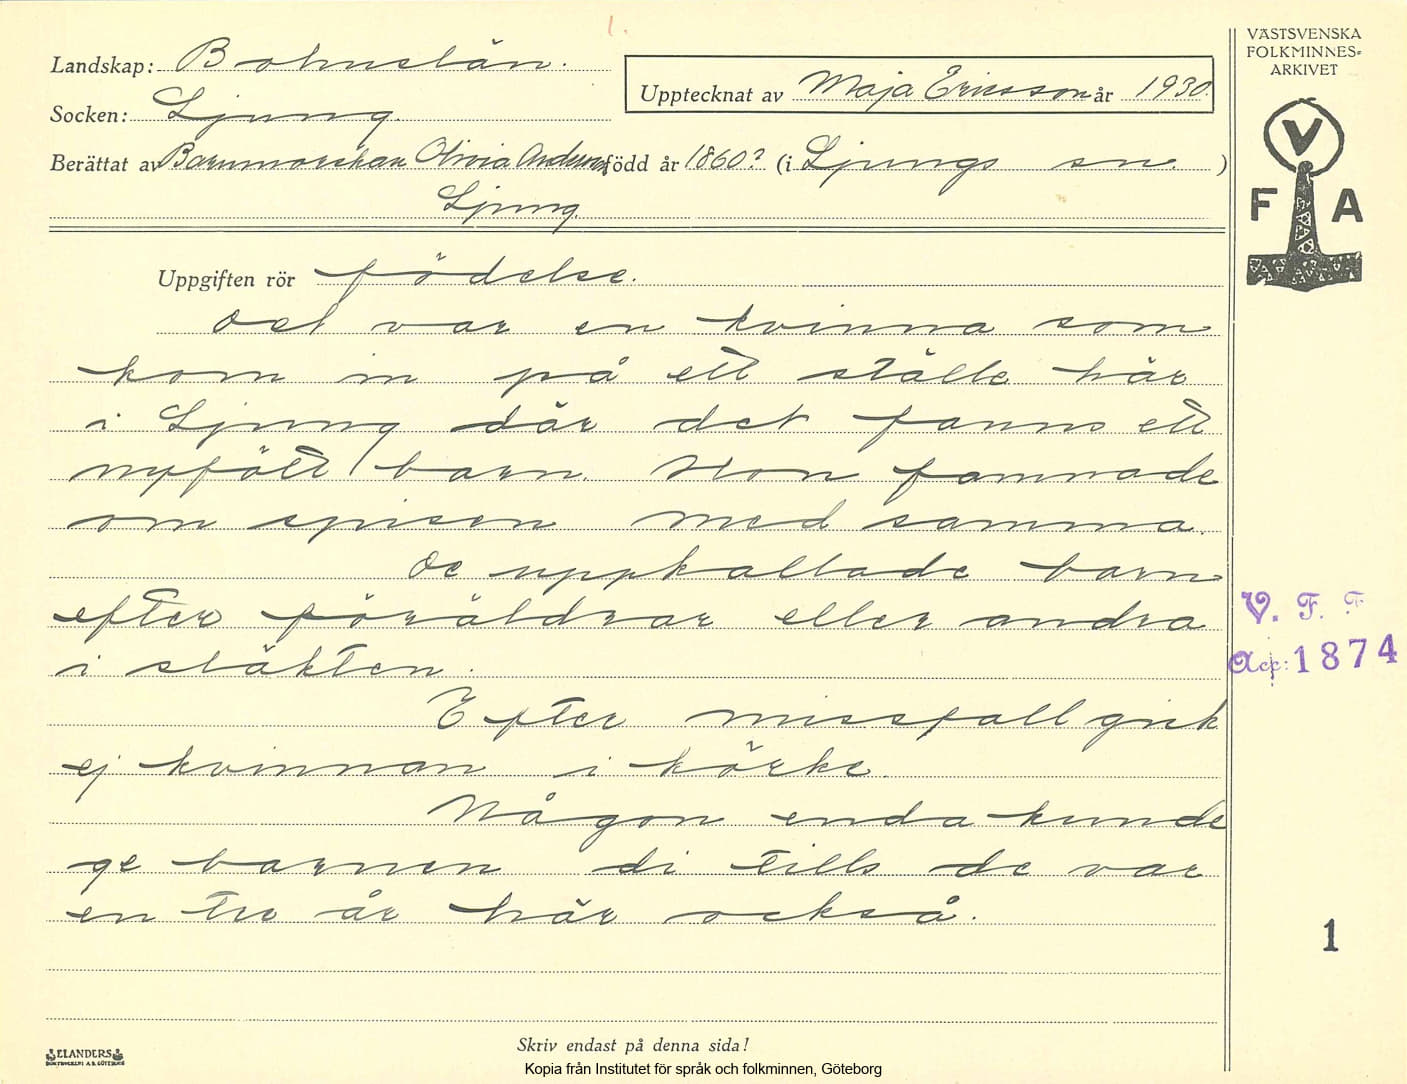 1.
Landskap: Bohuslän.
VÄSTSVENSKA
FOLKMINNES-
ARKIVET
Upptecknat av Maja Ericsson år 1930.
Socken: Ljung.
Berättat av Barnmorskan Olivia Anderss. född år 1860? (i Ljungs sn. )
Ljung.
V
F A
Uppgiften rör födelse.
Det var en kvinna som
kom in på ett ställe här
i Ljung där det fanns ett
nyfött barn. Hon famnade
om spisen med samma.
De uppkallade barn
efter föräldrar eller andra
i släkten.
V. F. F
Acc: 1874
Efter missfall gick
ej kvinnan i körke.
Någon enda kunde
ge barnen di tills de var
en tre år här också.
1
Skriv endast på denna sida!
ELANDERS
BOKTRYCKERI A.B. GÖTEBORG
Kopia från Institutet för språk och folkminnen, Göteborg